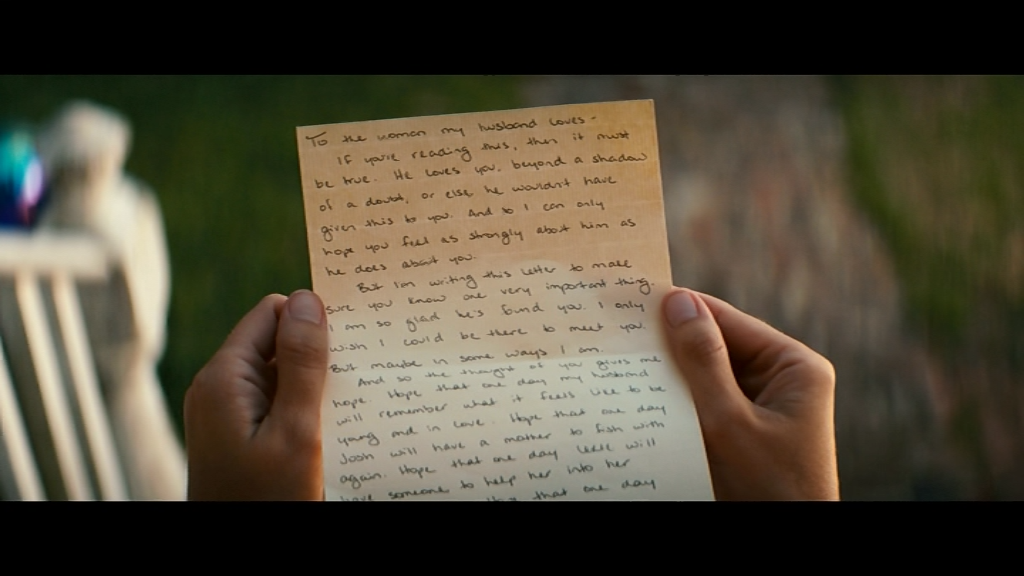 To the woman my husband loves-
If you're reading this, then it must
be true. He loves you, beyond a shadow
of a doubt, or else he wouldn't have
given this to you. And so I can only
hope you feel as strongly about him as
he does about you.
But I'm writing this letter to make
sure you know one very important thing.
I am so glad he's found you. I only
wish I could be there to meet you.
But maybe in some ways I am.
And so the thought of you gives me
hope. Hope that one day my husband
will remember what it feels like to be
young and in love. Hope that one day
Josh will have a mother to fish with
again. Hope that one day Lexie will
have someone to help her into her
that one day